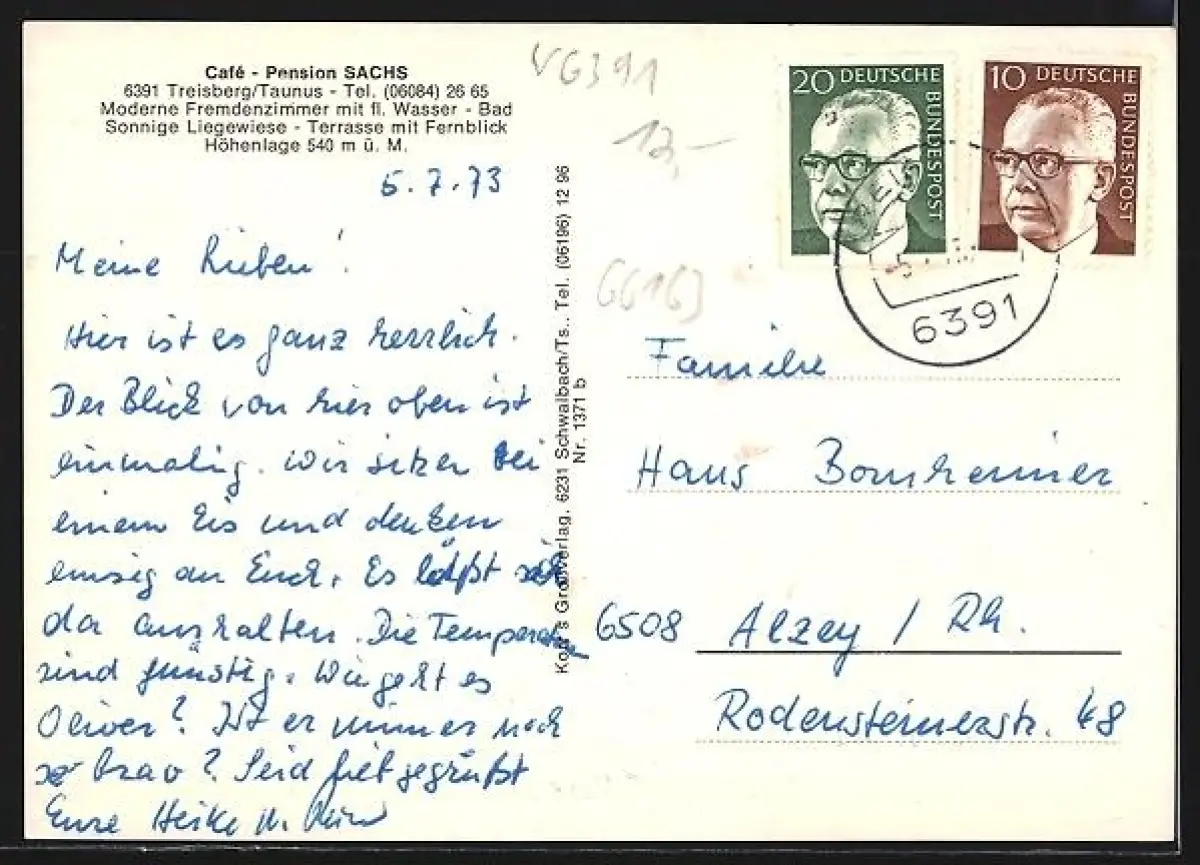 Café - Pension SACHS
6391 Treisberg/Taunus - Tel. (06084) 26 65
Moderne Fremdenzimmer mit fl. Wasser - Bad
Sonnige Liegewiese - Terrasse mit Fernblick
Höhenlage 540 m ü. M.
5.7.73
Meine Lieben!
Hier ist es ganz herrlich.
Der Blick von hier oben ist
einmalig. Wir sitzen bei
einem Eis und denken
an Euch. Es läßt sich
da aushalten. Die Temperaturen
sind günstig. Wie geht es
Oliver? Ist er immer noch
so brav? Seid gegrüßt
Eure Heike u.
Verlag, 6231 Schwalbach/Ts., Tel. (06196) 12 96
Nr. 1371 b
V6391
12,-
66163
20 DEUTSCHE BUNDESPOST
10 DEUTSCHE BUNDESPOST
6391
Familie
Hans Bornheimer
6508 Alzey / Rh.
Rodensteinerstr. 48